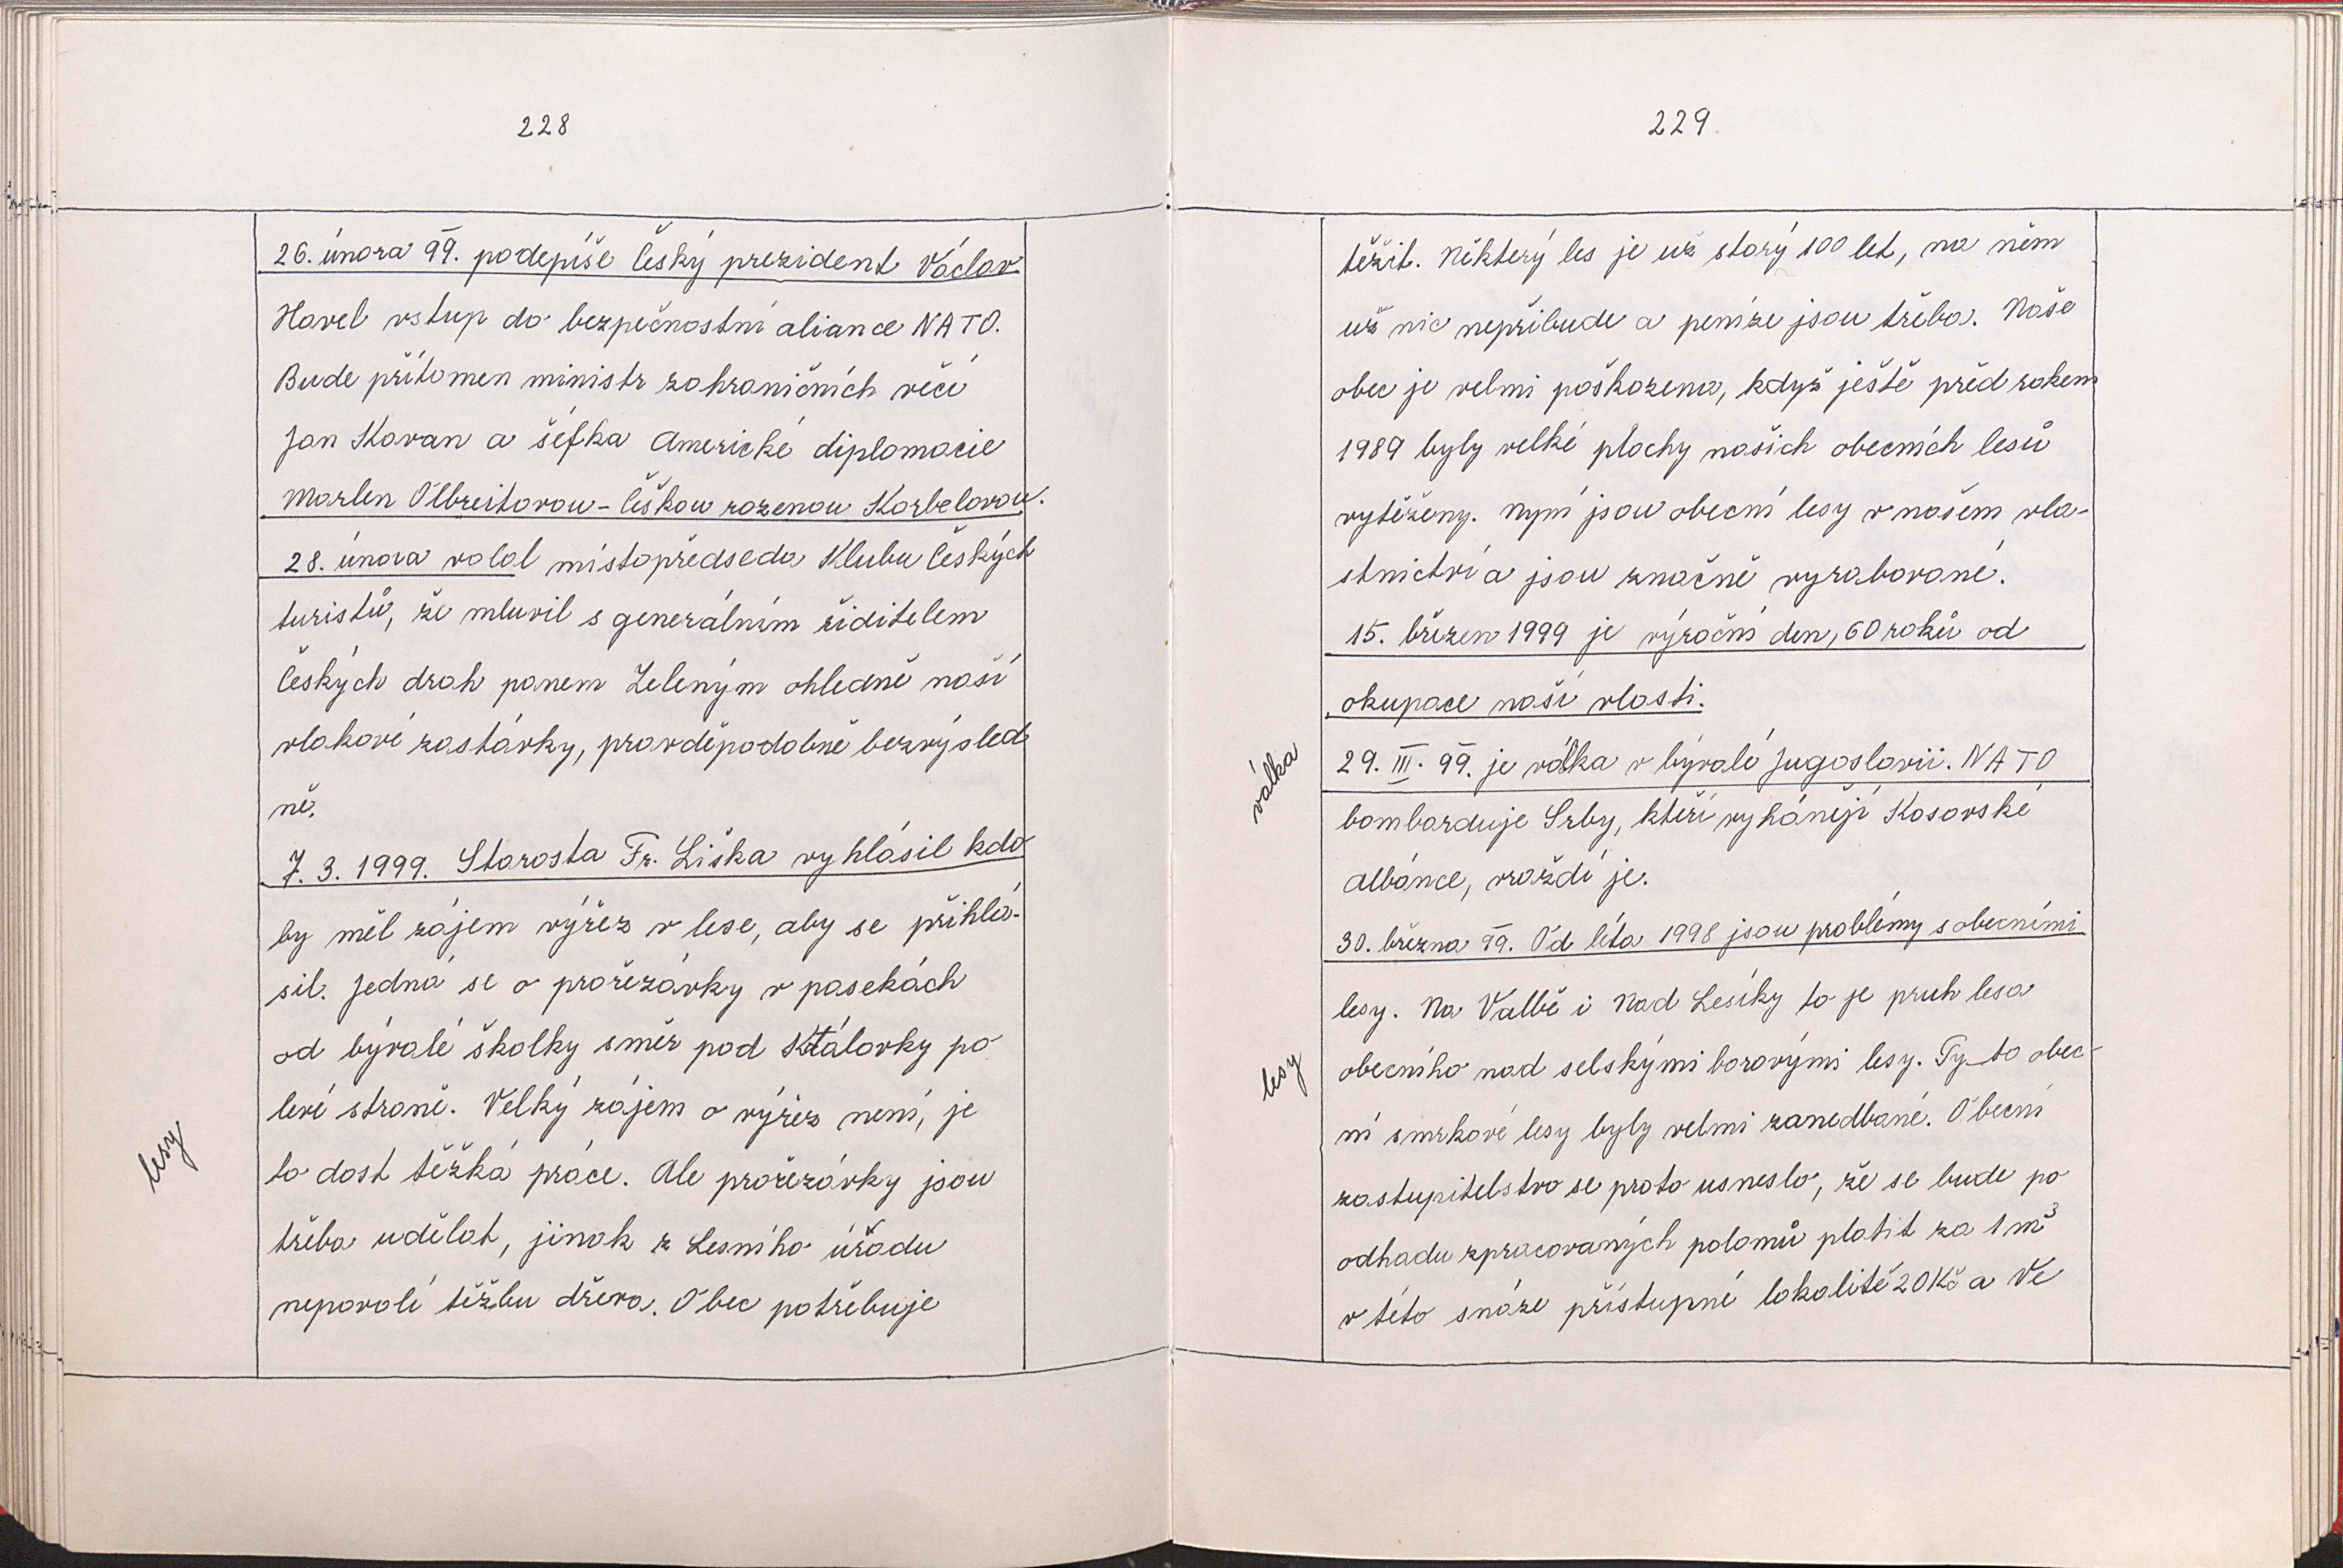 228
26. února 99. podepíše Český prezident Václav
Havel vstup do bezpečnostní aliance NATO.
Bude přítomen ministr zahraničních věcí
Jan Kavan a šéfka Americké diplomacie
Marlen Olbreitovou - Češkou rozenou Korbelovou.
28. února volal místopředseda Klubu Českých
turistů, že mluvil s generálním ředitelem
Českých drah panem Zeleným ohledně naší
vlakové zastávky, pravděpodobně bezvýsled
ně.
7. 3. 1999. Starosta Fr. Liška vyhlásil kdo
by měl zájem výřez v lese, aby se přihlá-
sil. Jedná se o prořezávky v pasekách
od bývalé školky směr pod Ktálovky po
levé straně. Velký zájem o výřez není, je
lesy
to dost těžká práce. Ale prořezávky jsou
třeba udělat, jinak z Lesního úřadu
nepovolí těžbu dřeva. Obec potřebuje
229.
těžit. Některý les je už starý 100 let, na něm
už nic nepřibude a peníze jsou třeba. Naše
obec je velmi poškozena, když ještě před rokem
1989 byly velké plochy našich obecních lesů
vytěženy. Nyní jsou obecní lesy v našem vla-
stnictví a jsou značně vyrabované.
15. březen 1999 je výroční den, 60 roků od
okupace naší vlasti.
válka
29. III. 99. je válka v bývalé Jugoslavii. NATO
bombarduje Srby, kteří vyhánějí Kosovské
albánce, vraždí je.
30. března 99. Od léta 1998 jsou problémy s obecními
lesy. Na Valbě i Nad Lesíky to je pruh lesa
lesy
obecního nad selskými borovými lesy. Ty to obec-
ní smrkové lesy byly velmi zanedbané. Obecní
zastupitelstvo se proto usneslo, že se bude po
odhadu zpracovaných polomů platit za 1 m³
v této snáze přístupné lokalitě 20 Kč a Ve